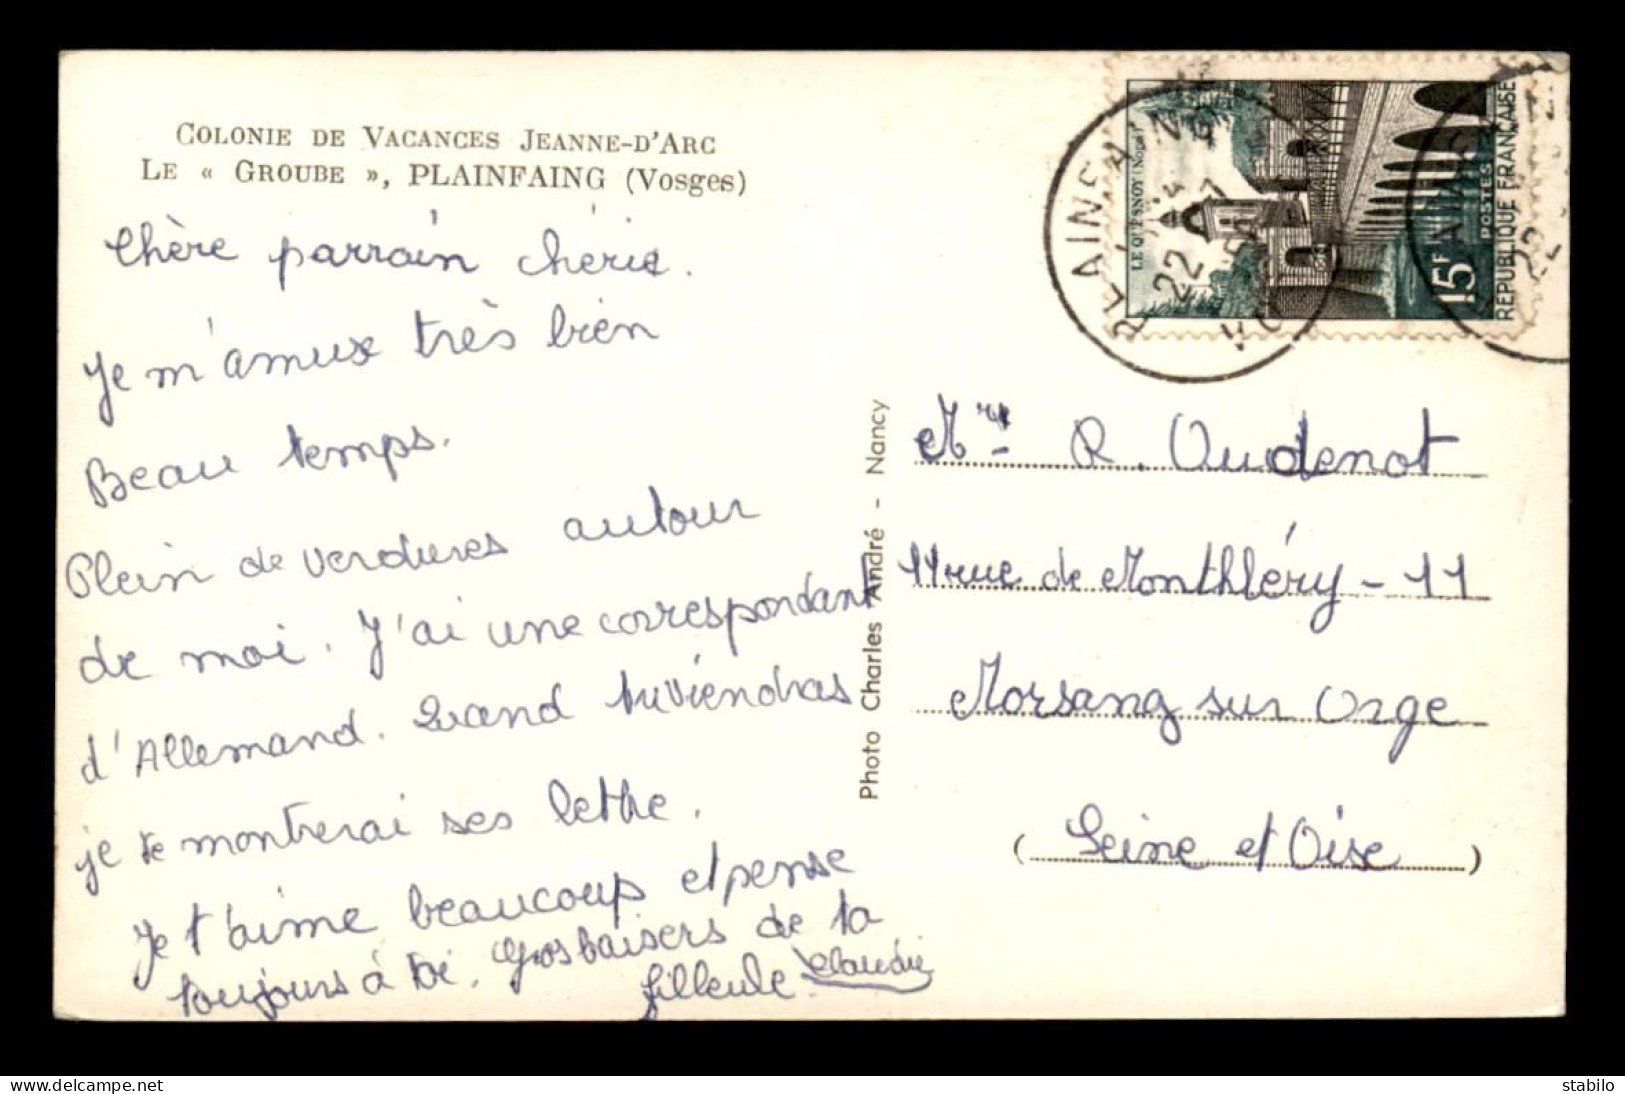 COLONIE DE VACANCES JEANNE-D'ARC
LE « GROUBE », PLAINFAING (Vosges)
Chère parrain chérie.
Je m'amuse très bien
Beau temps.
Plein de verdures autour
de moi. J'ai une correspondant
d'Allemand. Quand tu viendras
je te montrerai ses lettre.
Je t'aime beaucoup et pense
toujours à toi. Gros baisers de ta
filleule. Claudie
Photo Charles André - Nancy
LE QUESNOY (Nord)
15F
POSTES
REPUBLIQUE FRANÇAISE
PLAINFAING
22
R. Oudenot
11 rue de Monthléry - 11
Morsang sur Orge
(Seine et Oise)
stabilo